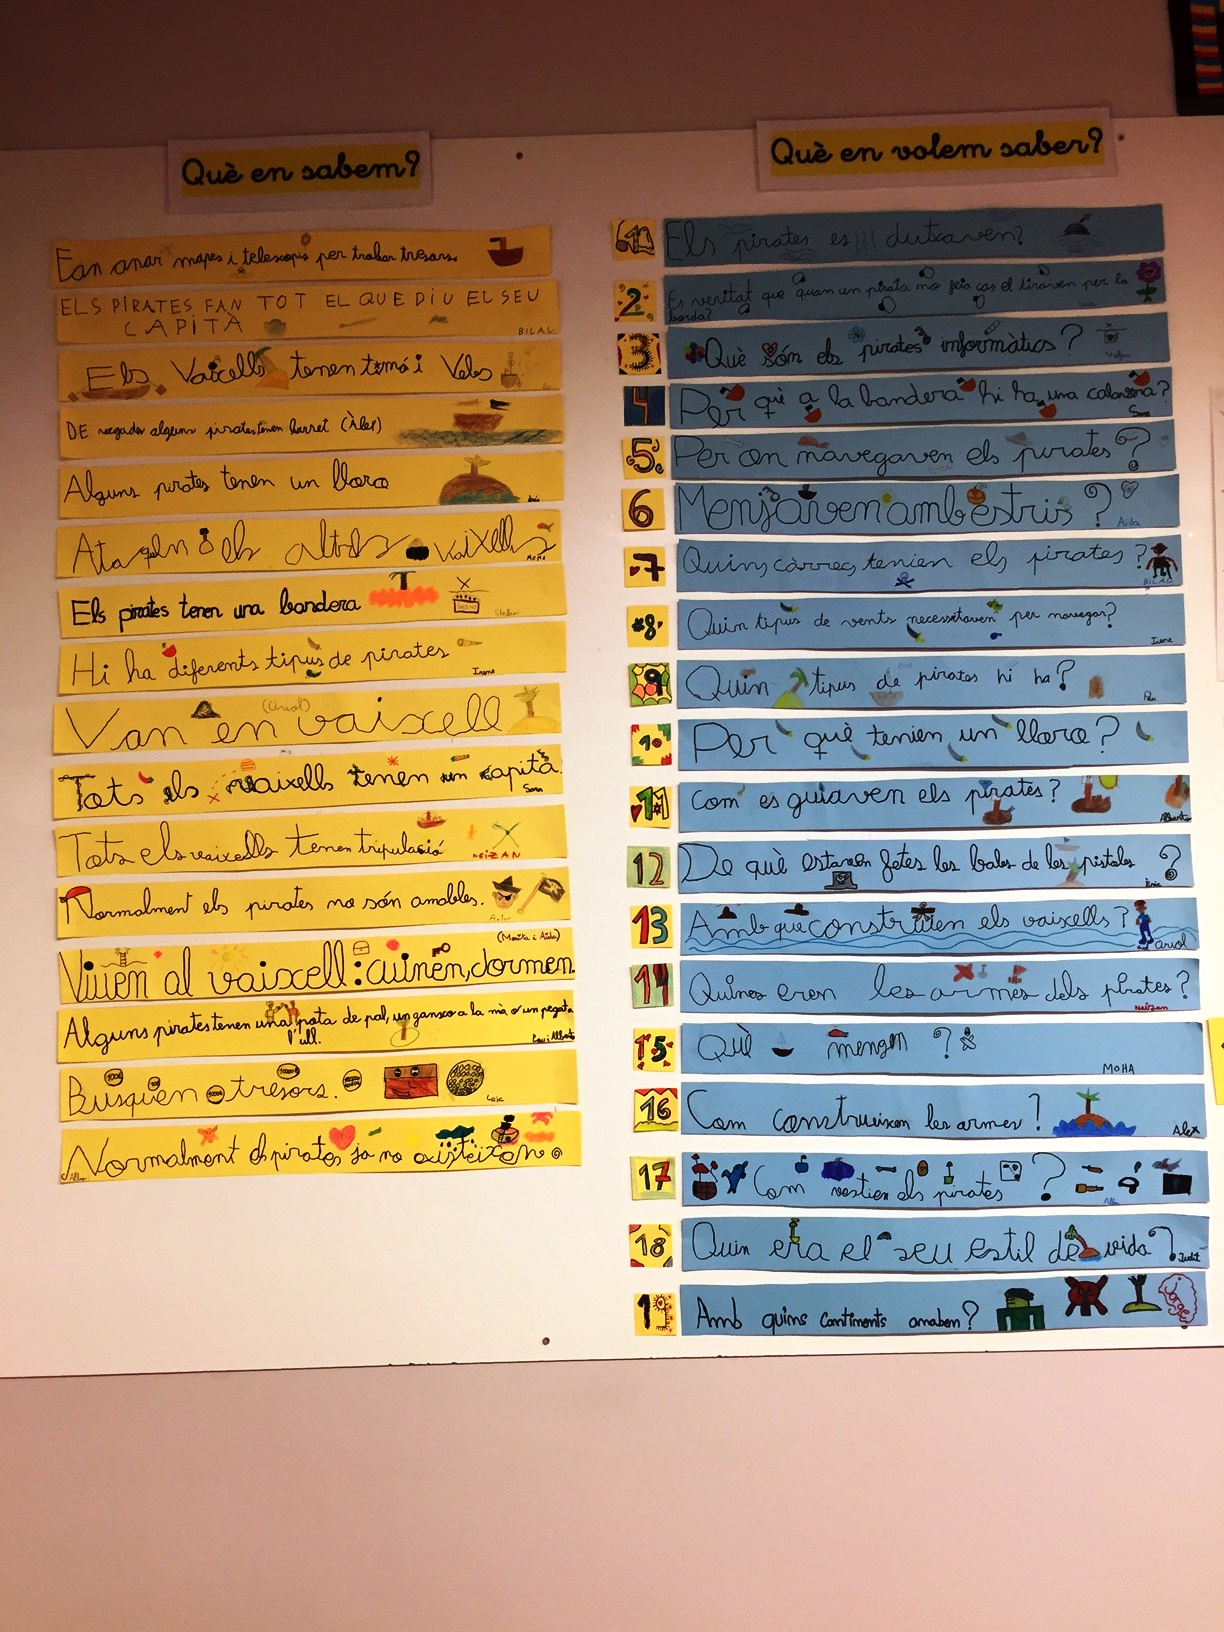 Què en sabem?
Fan anar mapes i telescopis per trobar tresors.
ELS PIRATES FAN TOT EL QUE DIU EL SEU
CAPITÀ
BILAL
Els Vaixells tenen timó i Veles
DE vegades alguns pirates tenen barret (Àlex)
Alguns pirates tenen un lloro
Ataquen els altres vaixells
MOHA
Els pirates tenen una bandera
Hi ha diferents tipus de pirates
Irene
(Ariol)
Van en vaixell
Tots els vaixells tenen un capità.
Sara
Tots els vaixells tenen tripulació
NEIZAN
Normalment els pirates no són amables.
(Martí i Aida)
Viuen al vaixell: cuinen, dormen.
Alguns pirates tenen una pota de pal, un ganxo a la mà o un pegat a
l'ull.
Pau i Alberto
Busquen tresors.
Laia
Normalment els pirates ja no existeixen.
Què en volem saber?
1 Els pirates es dutxaven?
2 Es veritat que quan un pirata no feia cas el tiraven per la
borda?
3 Què són els pirates informàtics?
4 Per què a la bandera hi ha una calavera?
Sara
5 Per on navegaven els pirates?
6 Menjaven amb estris?
Aida
7 Quins càrrecs tenien els pirates?
BILAL
8 Quin tipus de vents necessitaven per navegar?
Irene
9 Quin tipus de pirates hi ha?
Pau
10 Per què tenien un lloro?
11 com es guiaven els pirates?
Alberto
12 De què estaven fetes les bales de les pistoles?
13 Amb que construïen els vaixells?
Ariol
14 Quines eren les armes dels pirates?
Neizan
15 Què mengen?
MOHA
16 Com construeixen les armes?
Alex
17 Com vestien els pirates?
18 Quin era el seu estil de vida?
Judit
19 Amb quins continents anaben?
Jorge